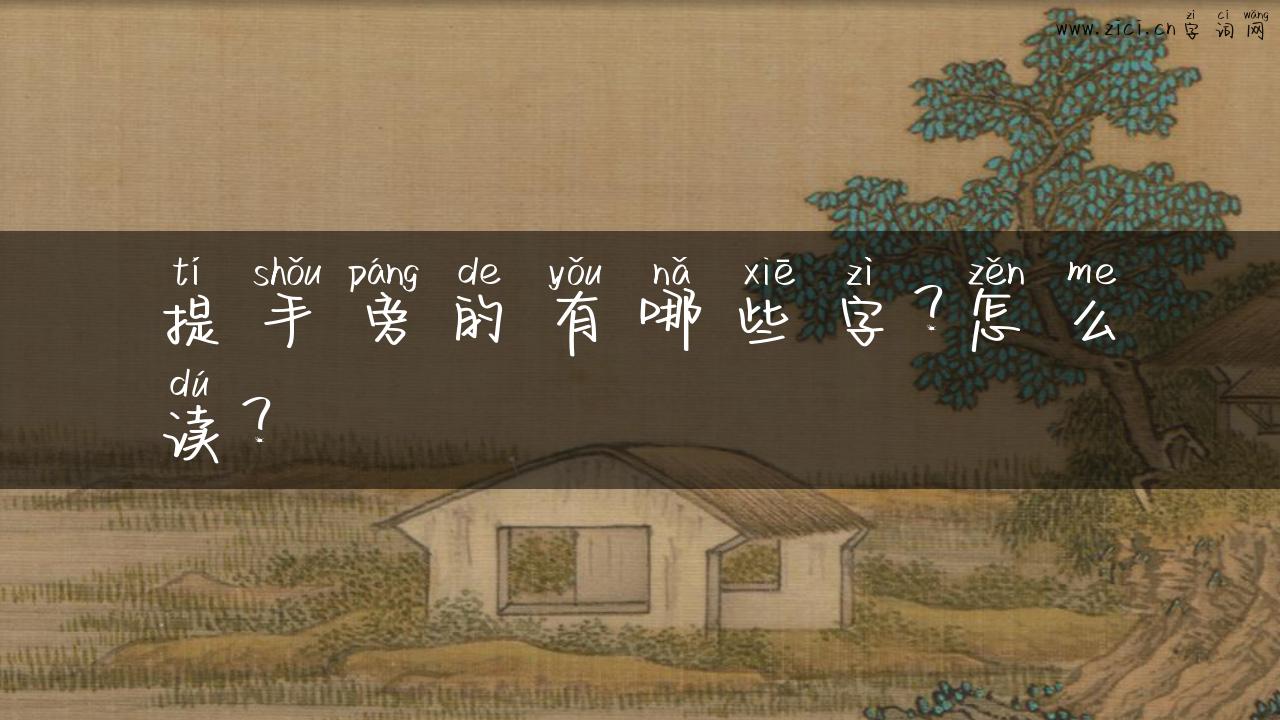 www.zici.cn zì cí wǎng
字词网
tí shǒu páng de yǒu nǎ xiē zì zěn me
提手旁的有哪些字？怎么
dú
读？